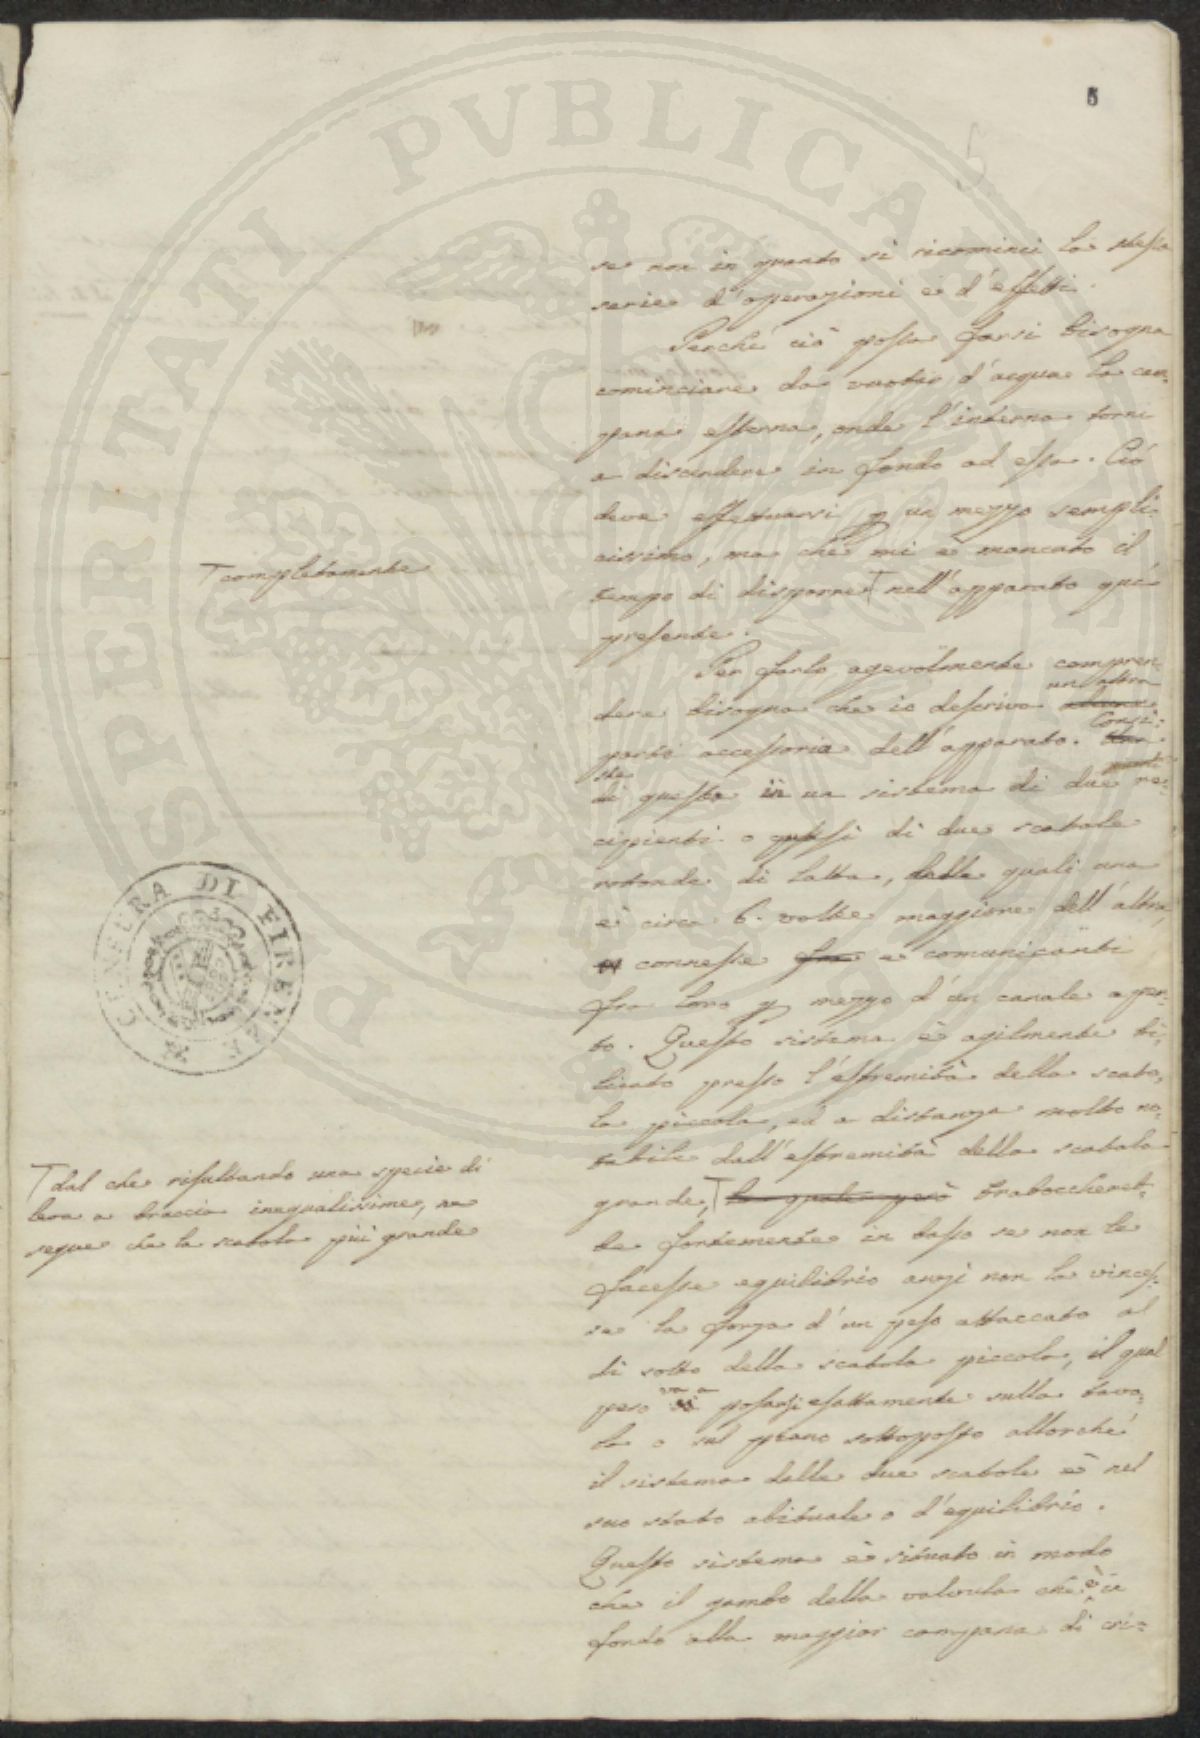 5
se non in quanto si ricominci la stessa
serie d'operazioni e d'effetti.
Perché ciò possa farsi bisogna
cominciare da vuotar d'acqua la cam-
pana esterna, onde l'interna torni
a discendere in fondo ad essa. Ciò
deve effettuarsi p un mezzo sempli-
cissimo, ma che mi è mancato il
tempo di disporre T nell'apparato quì
presente.
T completamente
Per farlo agevolmente compren-
un altra
dere bisogna che io descriva
parte accessoria dell'apparato. Consi-
ste
questa in un sistema di due re-
cipienti o quasi di due scatole
rotonde di latta, delle quali una
è circa 6. volte maggiore dell'altra,
connesse e comunicanti
fra loro p mezzo d'un canale aper-
to. Questo sistema è agilmente bi-
licato presso l'estremità della scato-
la piccola, ed a distanza molto no-
tabile dall'estremità della scatola
grande, T la quale però trabocchereb-
be fortemente in basso se non le
facesse equilibrio anzi non la vinces-
se la forza d'un peso attaccato al
di sotto della scatola piccola, il qual
peso va a posarsi esattamente sulla tavo-
la o sul piano sottoposto allorché
il sistema delle due scatole è nel
suo stato abituale o d'equilibrio.
Questo sistema è situato in modo
che il gambo della valvula che è in
fondo alla maggior campana di cri-
T dal che risultando una specie di
leva a braccia inegualissime, ne
segue che la scatola più grande
CENSURA DI FIRENZE
PUBLICAE
PROSPERITATI